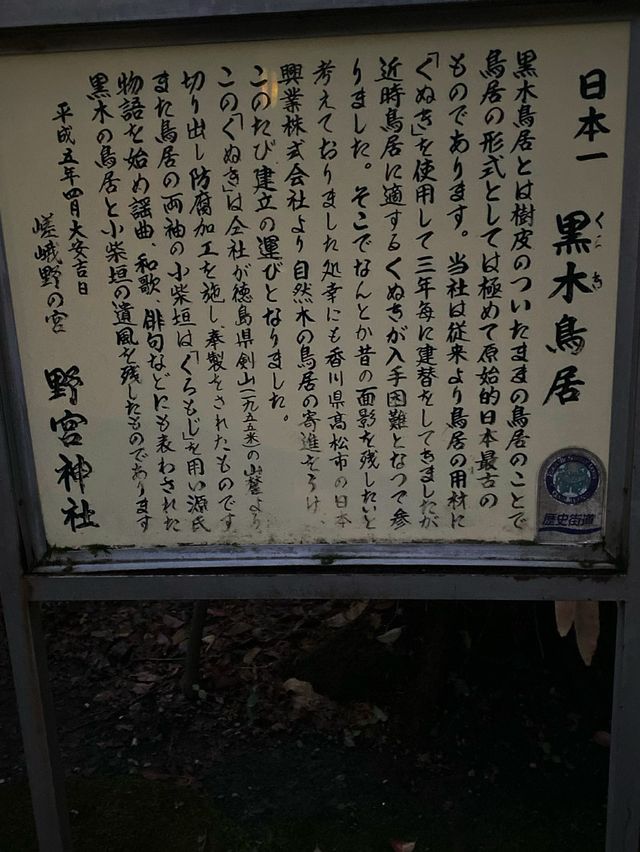 日本一 黒木鳥居
くろき
黒木鳥居とは樹皮のついたままの鳥居のことで
鳥居の形式としては極めて原始的日本最古の
ものであります。当社は従来より鳥居の用材に
「くぬぎ」を使用して三年毎に建替をしてきましたが
近時鳥居に適するくぬぎが入手困難となつて参
りました。そこでなんとか昔の面影を残したいと
考えておりました処幸にも香川県髙松市の日本
興業株式会社より自然木の鳥居の寄進をうけ、
このたび建立の運びとなりました。
この「くぬぎ」は会社が徳島県剣山(一九五五米)の山麓より
切り出し防腐加工を施し、奉製をされたものです
また鳥居の両袖の小柴垣は「くろもじ」を用い源氏
物語を始め謡曲、和歌、俳句などにも表わされた
黒木の鳥居と小柴垣の遺風を残したものであります
平成五年四月大安吉日
嵯峨野の宮 野宮神社
歴史街道